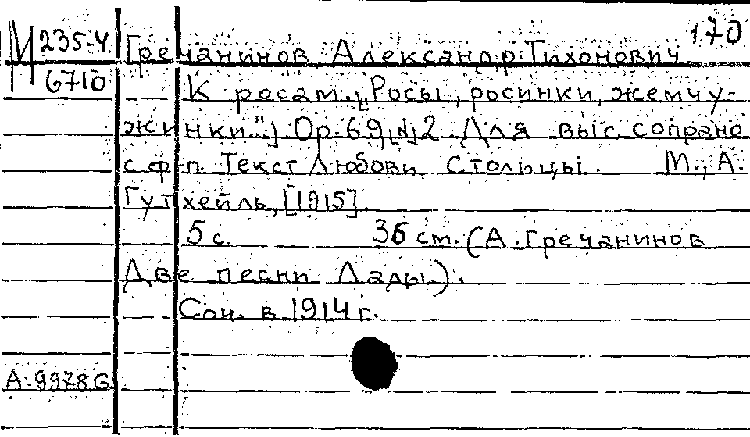 170
М 235-4
6710
Гречанинов, Александр Тихонович
К росам. („Росы, росинки, жемчу-
жинки".) Ор. 69, № 2. Для выс. сопрано
с ф-п. Текст Любови Столицы. М., А.
Гутхейль, [1915].
5 с. 36 см. (А. Гречанинов
Две песни Лады).
Соч. в 1914 г.
А-9978G